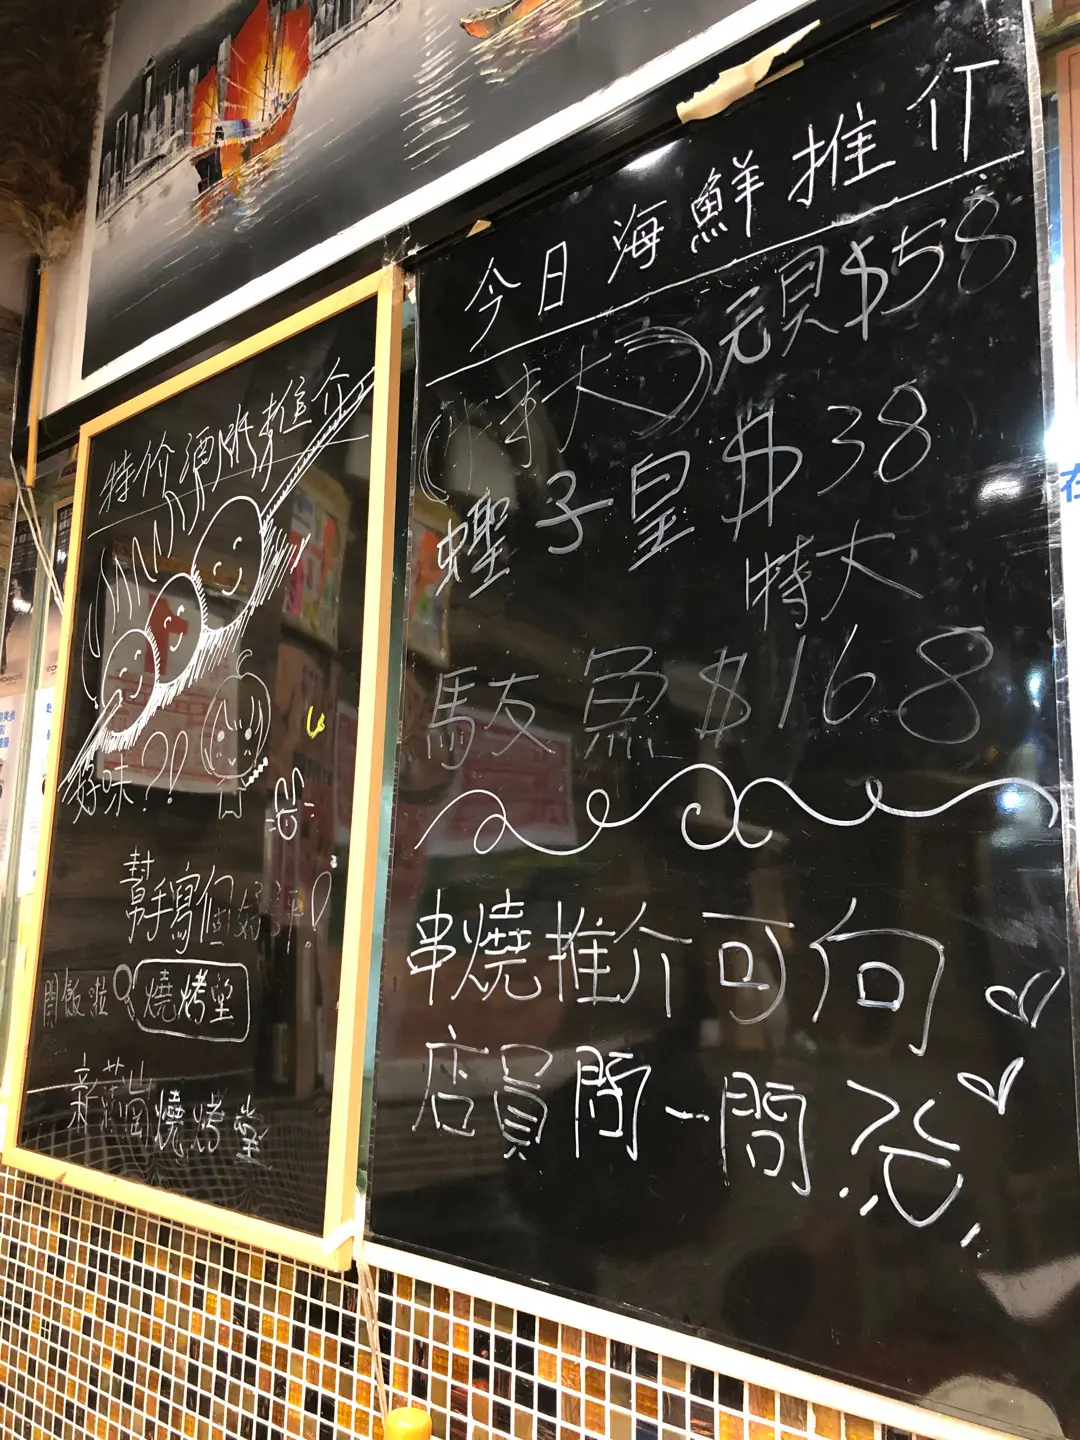 特价酒水推介
好味?!
幫手寫個好評!
開飯啦 燒烤堂
新蒲崗燒烤堂
今日海鮮推介
(特大)元貝$58
蟶子皇$38
特大
魚 $168
串燒推介可向
店員問一問
在